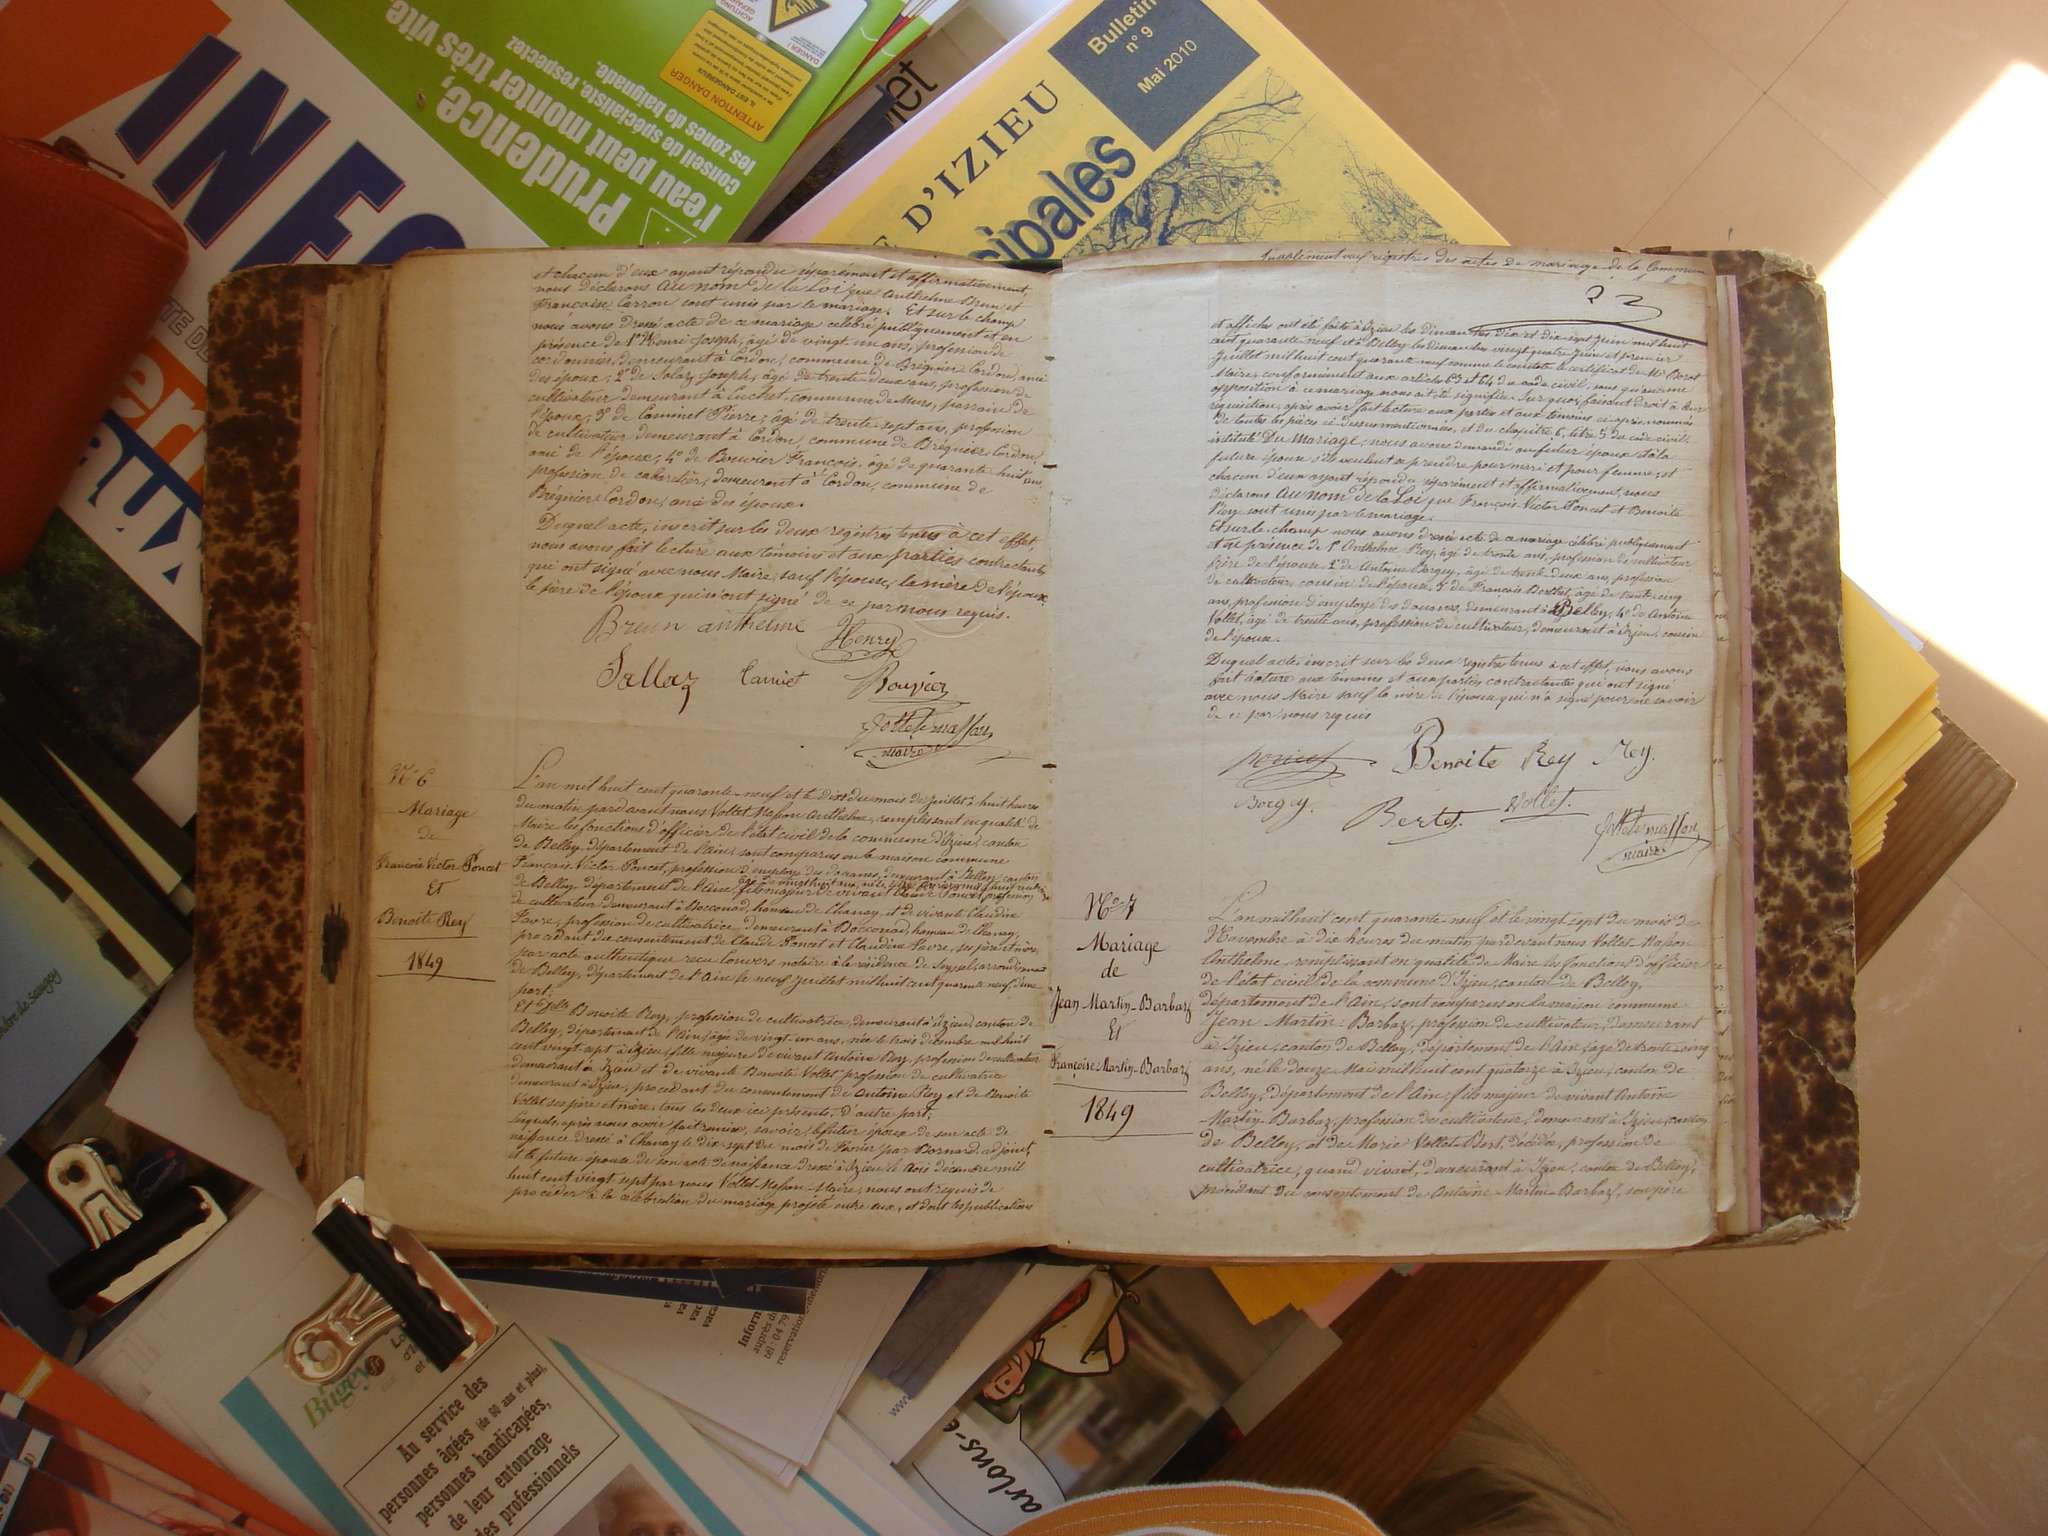 INFO
Prudence,
l'eau peut monter très vite.
conseil de spécialiste, respectez
les zones de baignade.
ATTENTION DANGER
DANGER !
Bulletin
n° 9
Mai 2010
E D'IZIEU
cipales
et chacun d'eux ayant répondu séparément et affirmativement,
nous déclarons au nom de la Loi que Anthelme Brun et
Françoise Carron sont unis par le mariage. Et sur le champ
nous avons dressé acte de ce mariage célébré publiquement et en
présence de 1° Henri Joseph, âgé de vingt un ans, profession de
cordonnier, demeurant à Cordon, commune de Brégnier-Cordon, ami
des époux; 2° de Salaz Joseph, âgé de trente-deux ans, profession de
cultivateur demeurant à commune de Murs, parrain de
l'époux; 3° de Caminet Pierre, âgé de trente-sept ans, profession
de cultivateur demeurant à Cordon, commune de Brégnier-Cordon,
ami de l'époux; 4° de Bouvier François, âgé de quarante-huit ans,
profession de cabaretier, demeurant à Cordon, commune de
Brégnier-Cordon, ami des époux.
Duquel acte, inscrit sur les deux registres tenus à cet effet,
nous avons fait lecture aux témoins et aux parties contractantes,
qui ont signé avec nous Maire, sauf l'épouse, la mère de l'époux,
le père de l'époux qui n'ont signé de ce par nous requis.
Brun anthelme Henry
Sallaz Bouvier
maire
N° 6
Mariage
de
François Victor Poncet
Et
Benoite Rey
1849
L'an mil huit cent quarante-neuf et le dix du mois de juillet à huit heures
du matin pardevant nous Vollet-Maſson Anthelme, remplissant en qualité de
Maire les fonctions d'officier de l'état civil de la commune d'Izieu, canton
de Belley, département de l'Ain, sont comparus en la maison commune
François Victor Poncet, profession d'employé des douanes, demeurant à Belley, canton
de Belley, département de l'Ain, fils majeur de vivant Claude Poncet, profession
de cultivateur demeurant à Bocconod, hameau de Chanay, et de vivante Claudine
Favre, profession de cultivatrice, demeurant à Bocconod, hameau de Chanay,
procédant du consentement de Claude Poncet et Claudine Favre, ses père et mère,
par acte authentique reçu notaire à la résidence de Seyssel, arrondissement
de Belley, département de l'Ain le neuf juillet mil huit cent quarante neuf, d'une
part;
Et Benoite Rey, profession de cultivatrice, demeurant à Izieu, canton de
Belley, département de l'Ain, âgée de vingt un ans, née le trois décembre mil huit
cent vingt sept à Izieu, fille majeure de vivant Antoine Rey, profession de cultivateur
demeurant à Izieu et de vivante Benoite Vollet profession de cultivatrice
demeurant à Izieu, procédant du consentement de Antoine Rey et de Benoite
Vollet ses père et mère, tous les deux ici présents, d'autre part;
Lesquels, après nous avoir fait remise, savoir, le futur époux de son acte de
naissance dressé à Chanay le dix sept du mois de février par Bornard, adjoint,
et la future épouse de son acte de naissance dressé à Izieu le décembre mil
huit cent vingt sept par nous Vollet-Maſson, Maire, nous ont requis de
procéder à la célébration du mariage projeté entre eux, et dont les publications
Supplément aux registres des actes de mariage de la Commune
et affiches ont été faites à Izieu les dimanches dix et dix sept juin mil huit
cent quarante neuf et à Belley les dimanches vingt quatre juin et premier
juillet mil huit cent quarante neuf comme le constate le certificat de Mr
Maire, conformément aux articles 63 et 64 du code civil, sans qu'aucune
opposition à ce mariage nous ait été signifiée. Sur quoi, faisant droit à leur
réquisition, après avoir fait lecture aux parties et aux témoins ci-après nommés
de toutes les pièces ci-dessus mentionnées, et du chapitre 6, titre 5 du code civil
intitulé Du Mariage, nous avons demandé au futur époux et à la
future épouse s'ils veulent se prendre pour mari et pour femme, et
chacun d'eux ayant répondu séparément et affirmativement, nous
déclarons au nom de la Loi que François Victor Poncet et Benoite
Rey sont unis par le mariage.
Et sur le champ nous avons dressé acte de ce mariage célébré publiquement
et en présence de 1° Anthelme Rey, âgé de trente ans, profession de cultivateur
frère de l'épouse 2° de Antoine Borgey, âgé de trente-deux ans, profession
de cultivateur, cousin de l'épouse, 3° de François Berthet, âgé de trente cinq
ans, profession d'employé des douanes, demeurant à Belley, 4° de Antoine
Vollet, âgé de trente ans, profession de cultivateur, demeurant à Izieu, cousin
de l'époux.
Duquel acte, inscrit sur les deux registres tenus à cet effet, nous avons
fait lecture aux témoins et aux parties contractantes qui ont signé
avec nous Maire sauf la mère de l'époux, qui n'a signé pour ne savoir
de ce par nous requis
Benoite Rey Rey.
Borgey. Vollet.
maire
N° 7
Mariage
de
Jean Martin-Barbaz
Et
Françoise Martin-Barbaz
1849
L'an mil huit cent quarante-neuf et le vingt sept du mois de
Novembre à dix heures du matin, pardevant nous Vollet-Maſson
Anthelme remplissant en qualité de Maire les fonctions d'officier
de l'état civil de la commune d'Izieu, canton de Belley,
département de l'Ain, sont comparus en la maison commune
Jean Martin-Barbaz, profession de cultivateur, demeurant
à Izieu, canton de Belley, département de l'Ain, âgé de trente-cinq
ans, né le douze Mai mil huit cent quatorze à Izieu, canton de
Belley, département de l'Ain, fils majeur de vivant Antoine
Martin-Barbaz, profession de cultivateur, demeurant à Izieu, canton
de Belley, et de Marie Vollet-Bert, décédée, profession de
cultivatrice, quand vivait, demeurant à Izieu, canton de Belley;
procédant du consentement de Antoine Martin-Barbaz, son père
Bugey
Au service des
personnes âgées (de 60 ans et plus),
personnes handicapées,
de leur entourage
des professionnels
Inform
auprès du
tél : 04 79
www
arlons-e